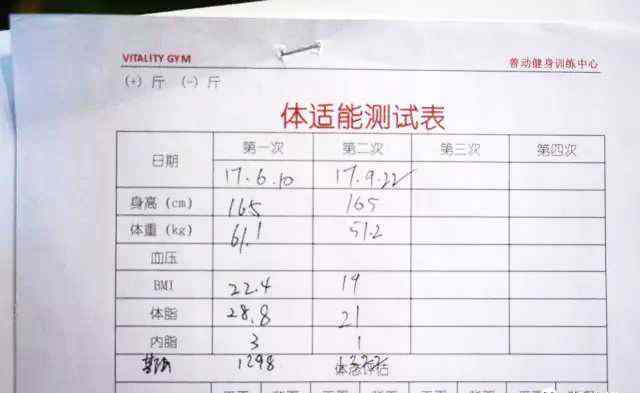 VITALITY GYM 善动健身训练中心
(+) 斤 (-) 斤
体适能测试表
日期 第一次 第二次 第三次 第四次
17.6.10 17.9.22
身高 (cm) 165 165
体重 (kg) 61.1 51.2
血压
BMI 22.4 19
体脂 28.8 21
内脂 3 1
1298 体态评估